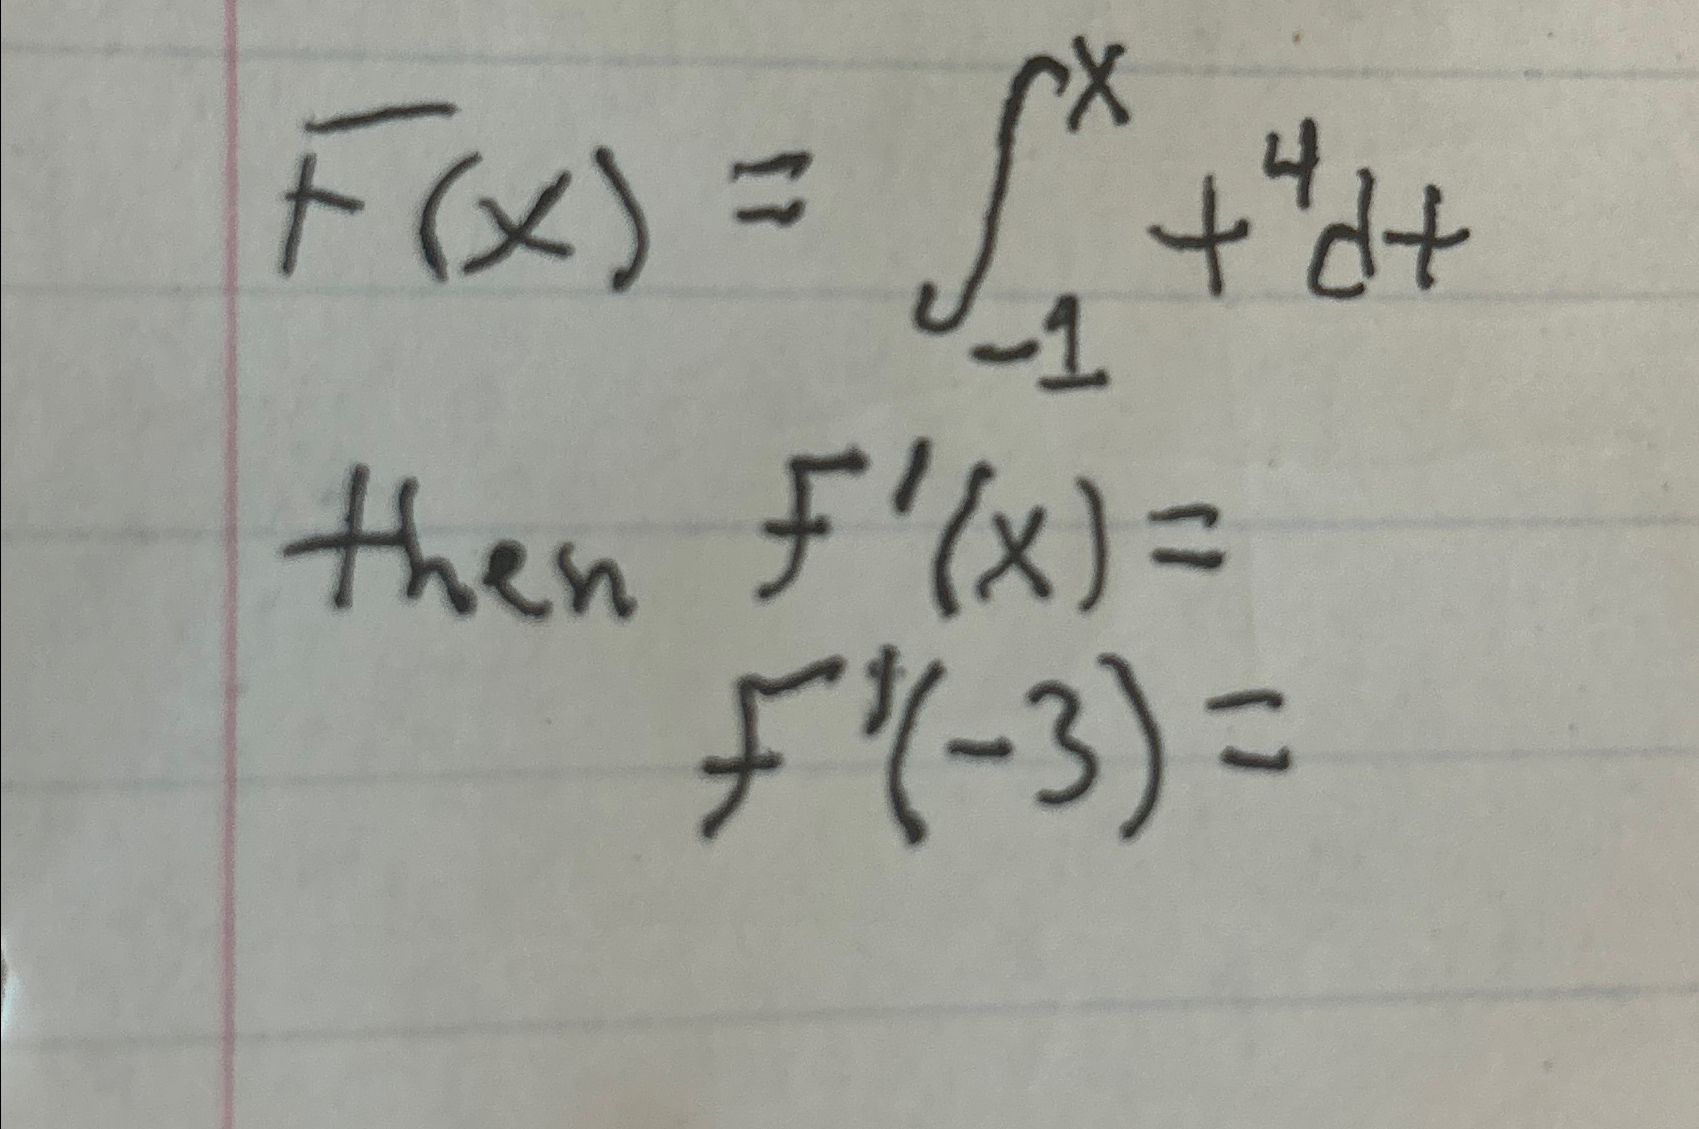 F(x) = ∫₋₁ˣ t⁴dt
then F'(x) =
F'(-3) =